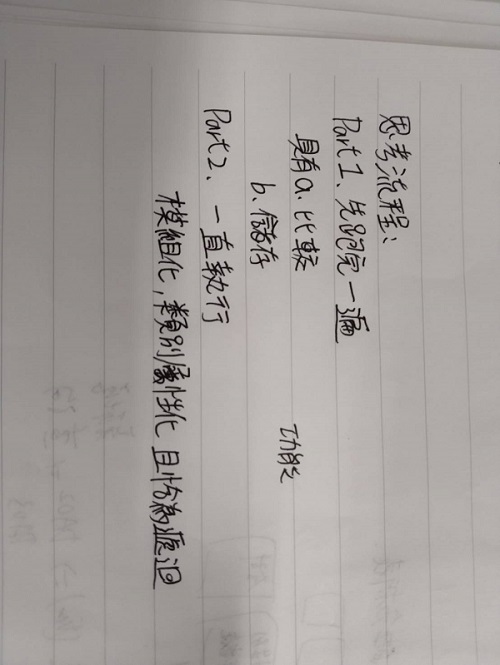 思考流程：
Part1、先跑完一遍
具有a.比較
b.儲存
功能
Part2、一直執行
模組化，類別屬性化 且恰為遞迴